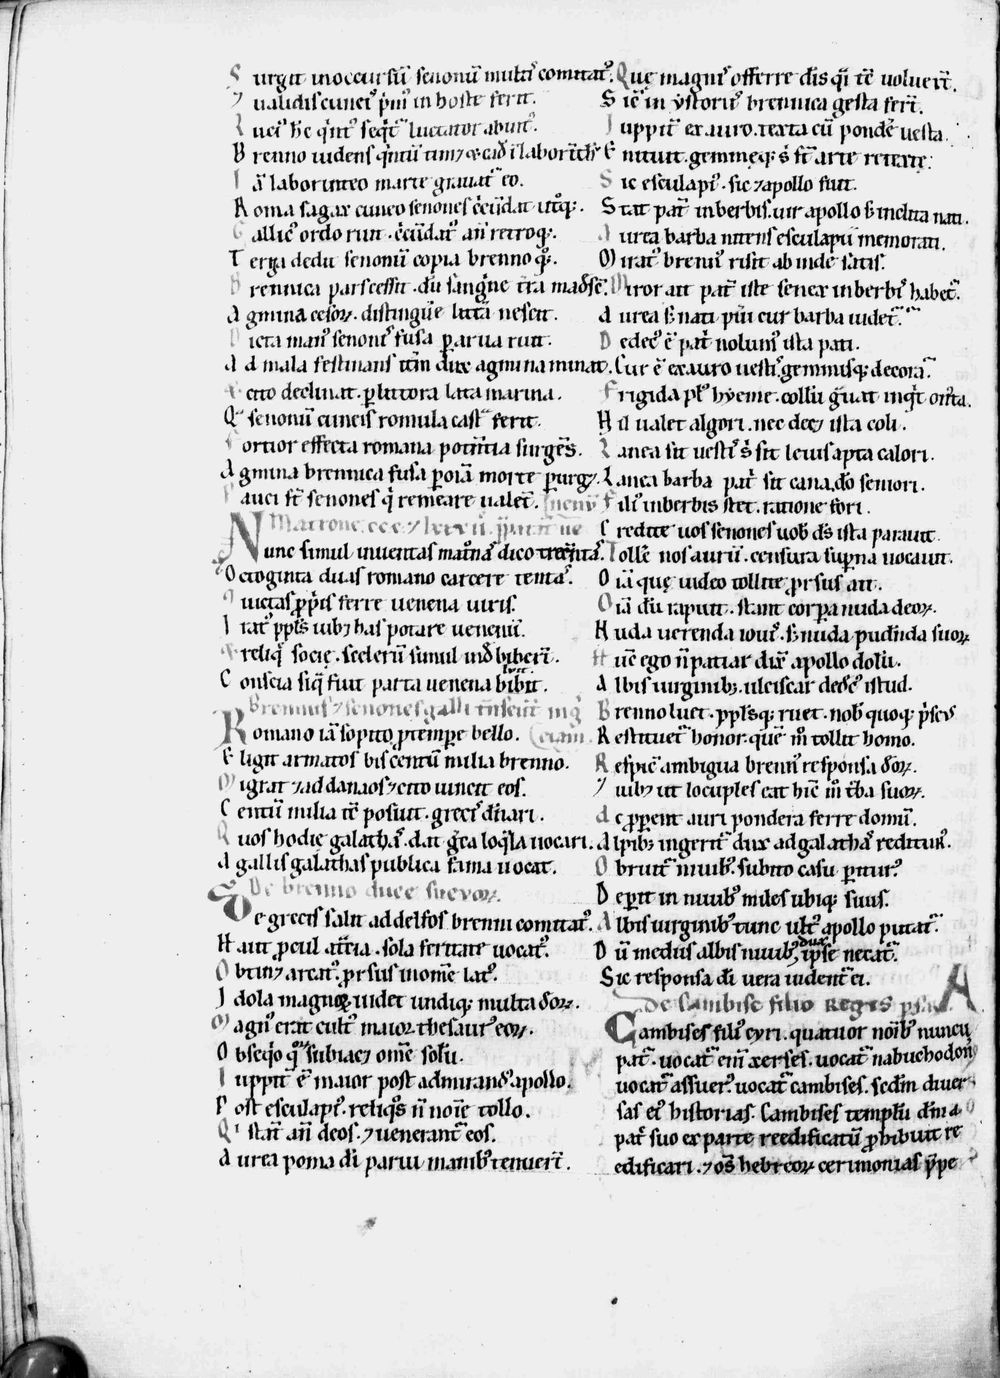 S urgit in occursū senonū multꝰ comitatꝰ.
⁊ ualidis cuneiꝰ pͥmꝰ in hoste ferit.
B renno uidens
I ā laborinteo marte grauat̄ eo.
R oma sagax cuneo senones
G allicꝰ ordo ruit
T erga dedit senonū copia brenno qꝫ.
B rennica pars cessit. dū sangͥne t̄ra
A gmina cesoꝝ. distingūe litt̄a nescit.
D icta manꝰ senonꝰ fusa ꝑ arua ruit.
A d mala festinans it̄m dux agmina minat.
ecto declinat. ꝑ littora lata marina.
Qͥ senonū cuneis romula castᵃ ferit.
F ortior effecta romana potētia surgēs.
A gmina brennica fusa ꝑ oīa morte ꝑurgꝫ.
P auci st̄ senones qͥ remeare ualēt.
Matrone ccc ⁊ lxxxii
N unc simul inuentas matͦnas dico
O ctoginta duas romano carcere tentaꝰ.
ꝓpͥis ferre uenena uiris.
I ratꝰ ppl̄s iubꝫ has potare uenenū.
reliqͥ socię. scelerū simul inđ biberī.
C onscia siqͣ fuit parta uenena bibit.
Brennius ⁊ senones galli
R omano iā sopito ꝓtempere bello.
E ligit armatos bis centū milia brenno.
M igrat ⁊ ad danaos ⁊ cito uincit eos.
C entū milia tc̄ posuit. grecis
Q uos hodie galathaꝰ. dat gͬca loqͥla uocari.
A gallis galathas publica fama uocat.
De brenno duce sueuoꝝ.
D e grecis salit ad delfos brenni comitatꝰ.
H aut ꝓcul at̄ria. sola feritate uocatꝰ.
O btinꝫ arcatꝰ. ꝓrsus inomē latꝰ.
I dola magnoꝝ uidet undiqꝫ multa đoꝝ.
M agnꝰ erat cultꝰ maior thesaurꝰ eoꝝ.
O bseqͥo subiacꝫ omē solū.
I uppit̄ ē maior post admirandꝰ apollo.
P ost esculapꝰ. reliqͦs n̄ noīe tollo.
Qͥ stāt an̄ deos. ⁊ uenerant̄ eos.
A urea poma di parui manibꝰ tenuer̄t.
Q uę magniꝰ offerre dis qͣi tc̄ uoluer̄t.
S ic̄ in ystoriis brennica gesta fer̄t.
I uppit̄ ex auro. texta cū pondē uesta.
E nituit. gemmęqꝫ s̄ st̄ arte retexte.
S ic esculapꝰ. sic ⁊ apollo fuit.
S tat pat̄ inberbis. uir apollo s̄ inclita nati.
A urea barba nitens esculapii memorati.
M iratꝰ brenīꝰ risit ab inde satis.
M iror ait pat̄ iste senex inberbꝰ habet̄.
A urea s̄ nati pūi cur barba uidet̄.
D edecꝰ ē pat̄ nolumꝰ ista pati.
C ur ē ex auro uestiꝰ. gemmisqꝫ decora.
F rigida pꝉꝰ hyeme. collū gͣuat inqͥt
N il ualet algori. nec decꝫ ista coli.
L anea sit uestis s̄ sit leuis apta calori.
L anea barba pat̄ sit cana. đo seniori.
F iliꝰ inberbis stet. ratione fori.
C redite uos senones uob̄ ds̄ ista parauit.
T ollē nos aurū. censura suꝑna uocauit.
O īa quę uideo tollite ꝓrsus ait.
O īa dū rapuit. stant corꝑa nuda deoꝝ.
N uda uerenda iouiꝰ. s̄ nuda pudēda suoꝝ
N c̄ ego n̄ patiar dixꝰ apollo dolū.
A lbis uirginibꝫ. ulciscar dedecꝰ istud.
B renno luet. ppl̄sqꝫ ruet. nob̄ quoqꝫ
R estituet̄ honor. quē m̊ tollit homo.
R espicͤ ambigua brennꝰ responsa đoꝝ.
⁊ iubꝫ ut locuples eat hīc m̊ t̄ba suoꝝ.
A c ꝓꝑent auri pondera ferre domū.
A lpibꝫ ingerit̄ dux ad galathaꝰ rediturꝰ.
O bruit̄ niuibꝰ. subito casu ꝑiturꝰ.
D eꝑit in niuibꝰ miles ubiqꝫ suus.
A lbis uirginibꝰ tunc ultꝰ apollo putat̄.
D ū mediis albis niuibꝫ dux ip̄se necat̄.
S ic responsa di uera uident̄ ei.
De Cambise filio Regis
Cambises filiꝰ cyri. quatuor noībꝰ nuncu
pat̄. uocat̄ em̄ xerses. uocat̄ nabuchodonͦ
uocat̄ assuerꝰ. uocat̄ cambises. scdm̄ diuer
sas eiꝰ historias. Cambises templū dm̄ a
pat̄ suo ex parte reedificatū ꝓhibuit re
edificari. ⁊ om̄s hebreoꝝ cerimonias